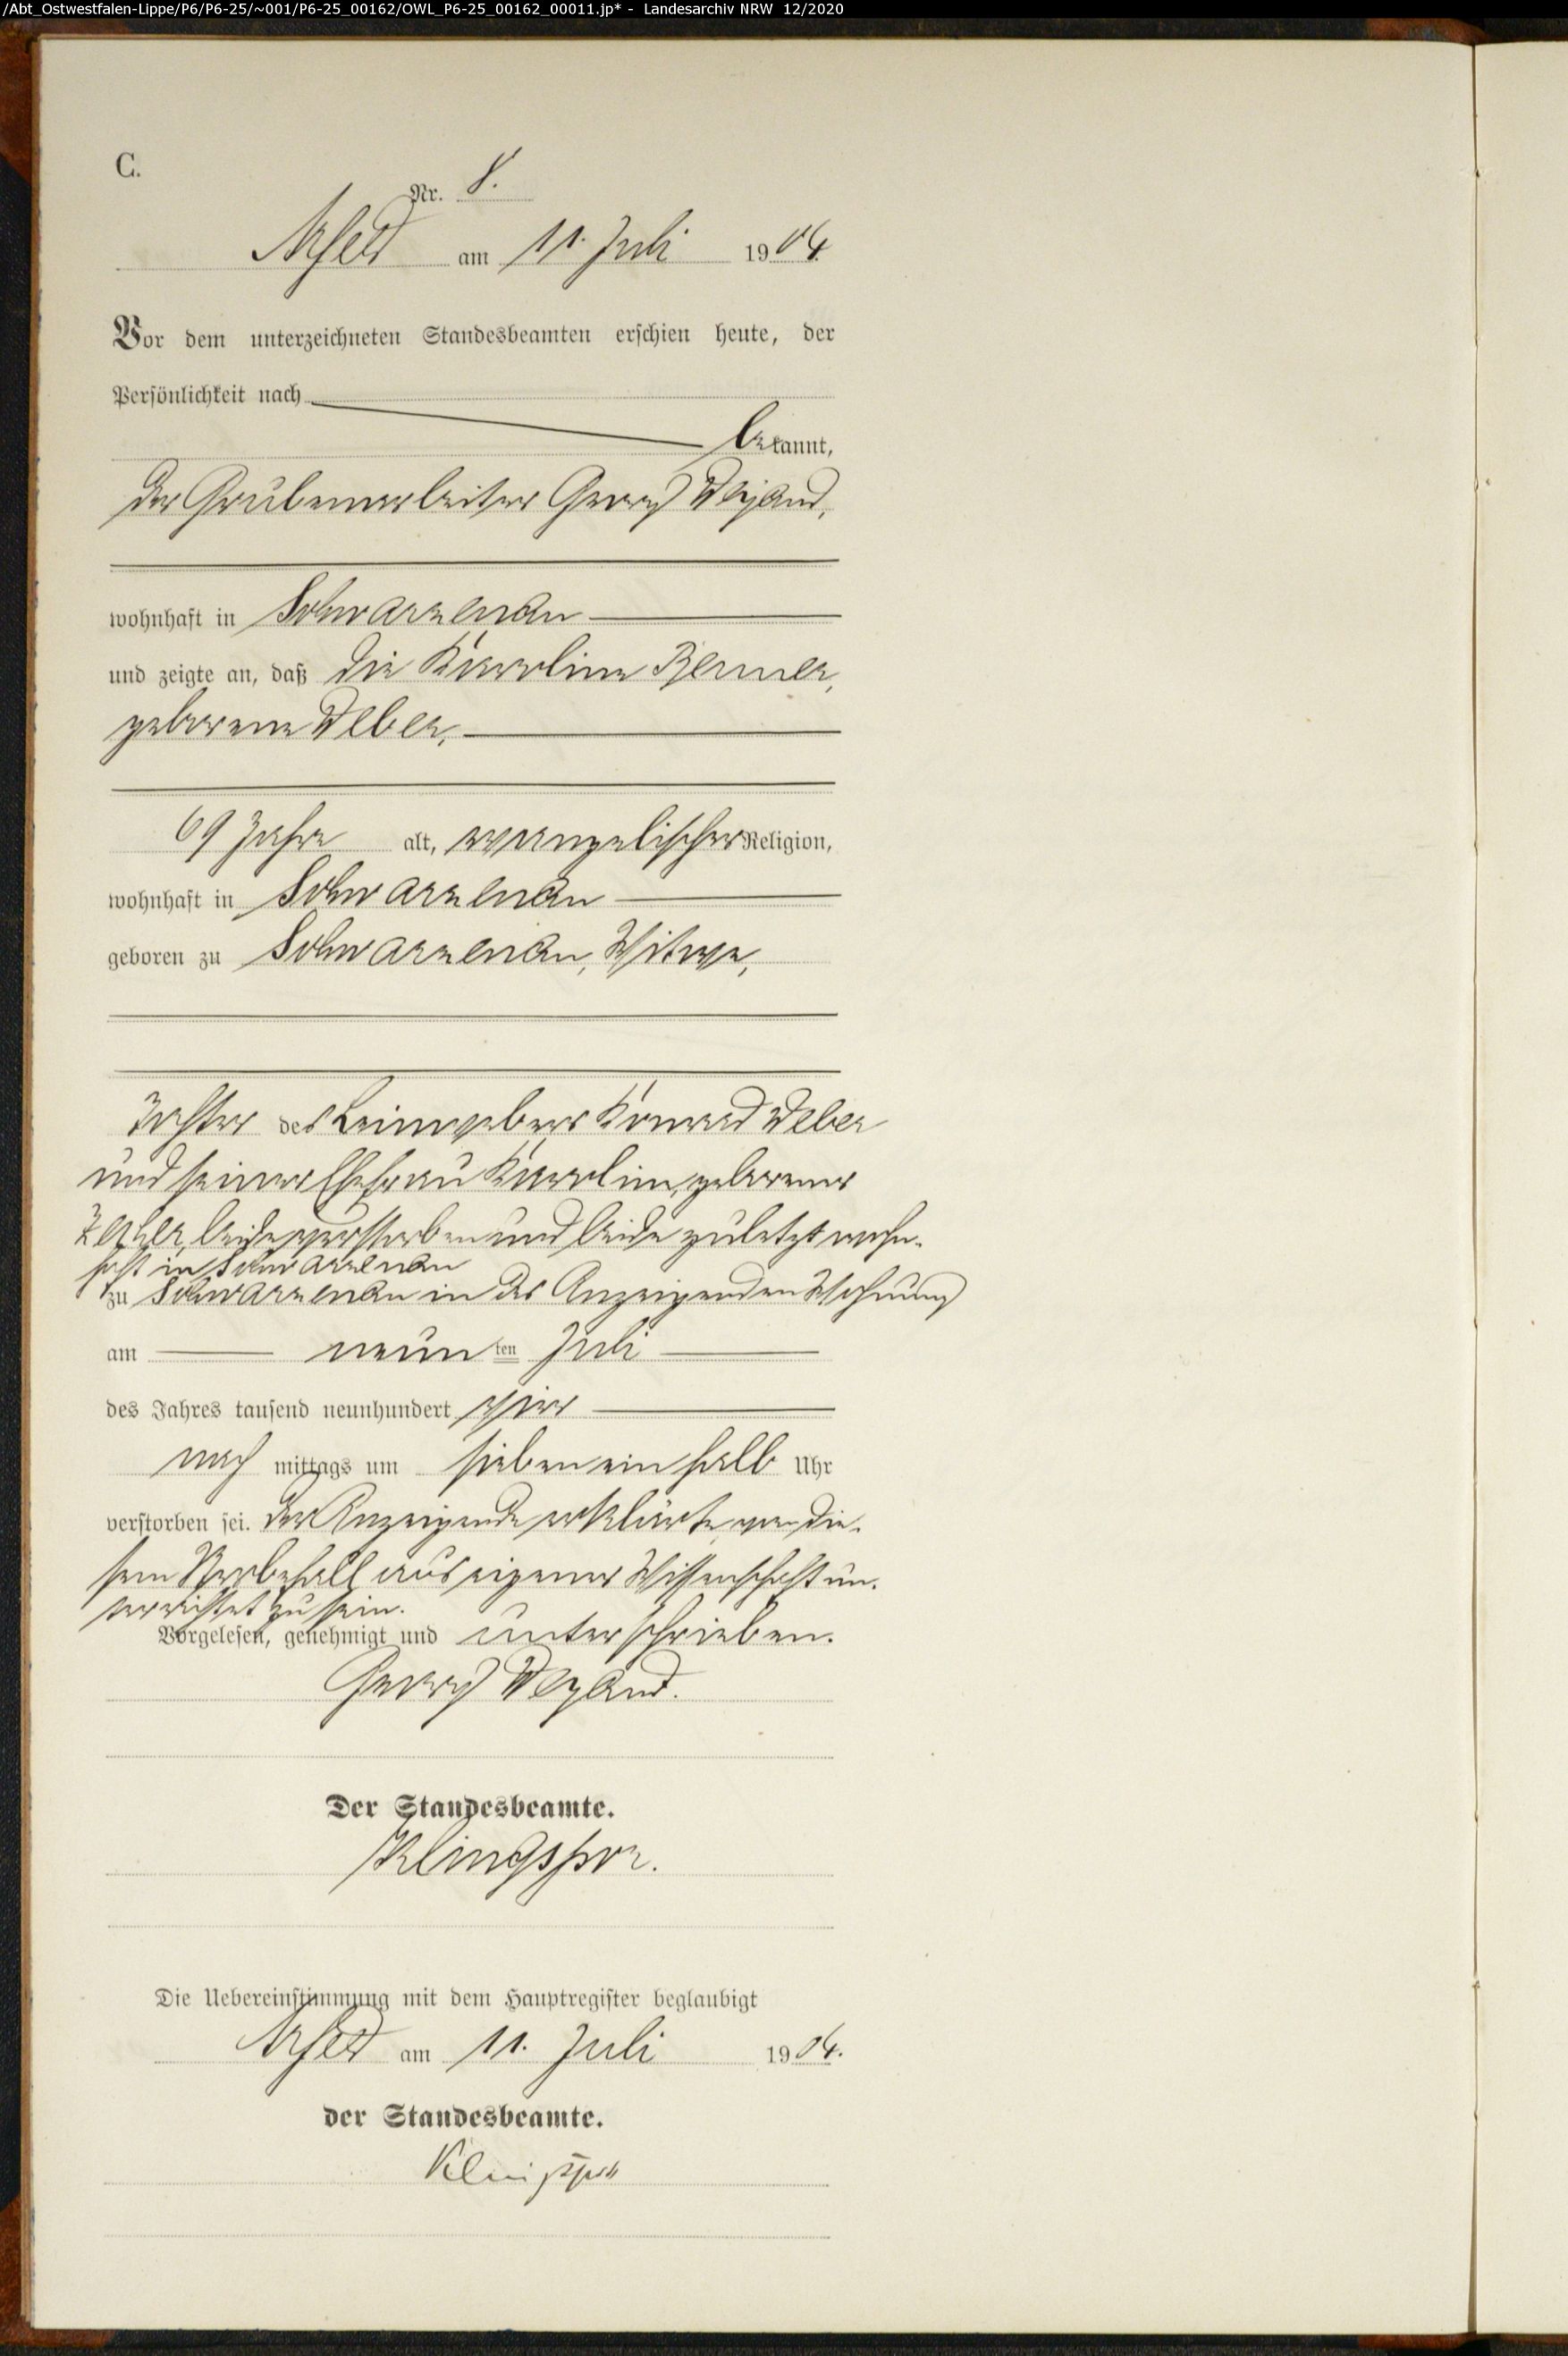 /Abt_Ostwestfalen-Lippe/P6/P6-25/~001/P6-25_00162/OWL_P6-25_00162_00011.jp* - Landesarchiv NRW 12/2020
C.
Nr. 8.
Arfeld am 11. Juli 1904.
Vor dem unterzeichneten Standesbeamten erschien heute, der
Persönlichkeit nach
bekannt,
der Grubenarbeiter Georg Weyand,
wohnhaft in Schwarzenau
und zeigte an, daß die Karoline Benner,
geborene Weber,
69 Jahre alt, evangelischer Religion,
wohnhaft in Schwarzenau
geboren zu Schwarzenau, Witwe,
Tochter des Leinewebers Konrad Weber
und seiner Ehefrau Karoline, geborener
beide verstorben und beide zuletzt wohn-
haft in Schwarzenau
zu Schwarzenau in des Anzeigenden Wohnung
am neunten Juli
des Jahres tausend neunhundert vier
nachmittags um sieben ein halb Uhr
verstorben sei. Der Anzeigende erklärte, von die-
sem Sterbefall aus eigener Wissenschaft un-
terrichtet zu sein.
Vorgelesen, genehmigt und unterschrieben.
Georg Weyand.
Der Standesbeamte.
Klingspor.
Die Uebereinstimmung mit dem Hauptregister beglaubigt
Arfeld am 11. Juli 1904.
der Standesbeamte.
Klingspor